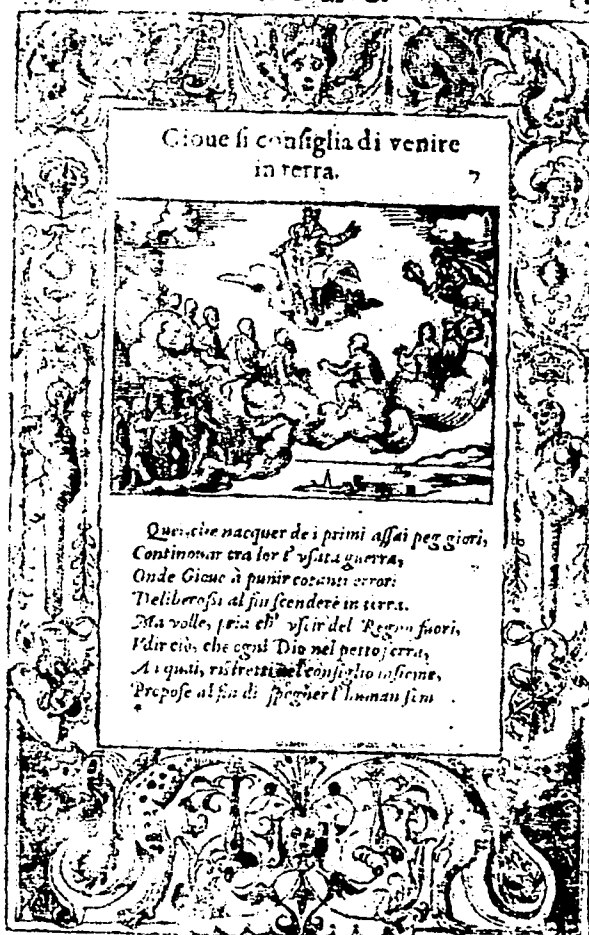 Gioue si consiglia di venire
in terra.
7
Quei, che nacquer de i primi assai peggiori,
Continouar tra lor l' vsata guerra,
Onde Gioue à punir cotanti errori
Deliberossi al fin scendere in terra.
Ma volle, pria ch' vscir del Regno fuori,
Vdir ciò, che ogni Dio nel petto serra,
A i quai, ristretti nel consiglio insieme,
Propose al fin di spegner l' human sem